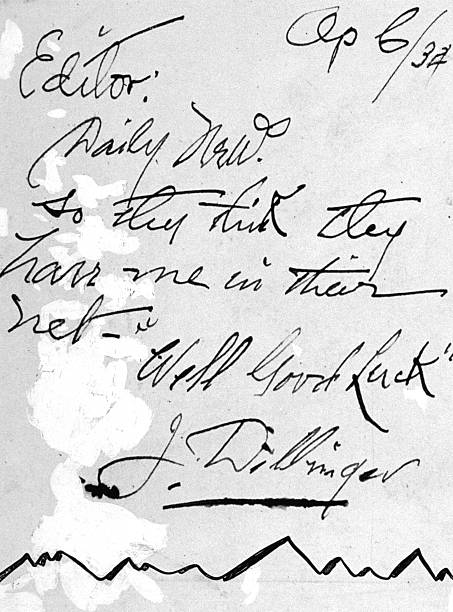 Ap 6/34
Editor:
Daily News.
So they think they
have me in their
net - "
Well Good Luck"
J. Dillinger